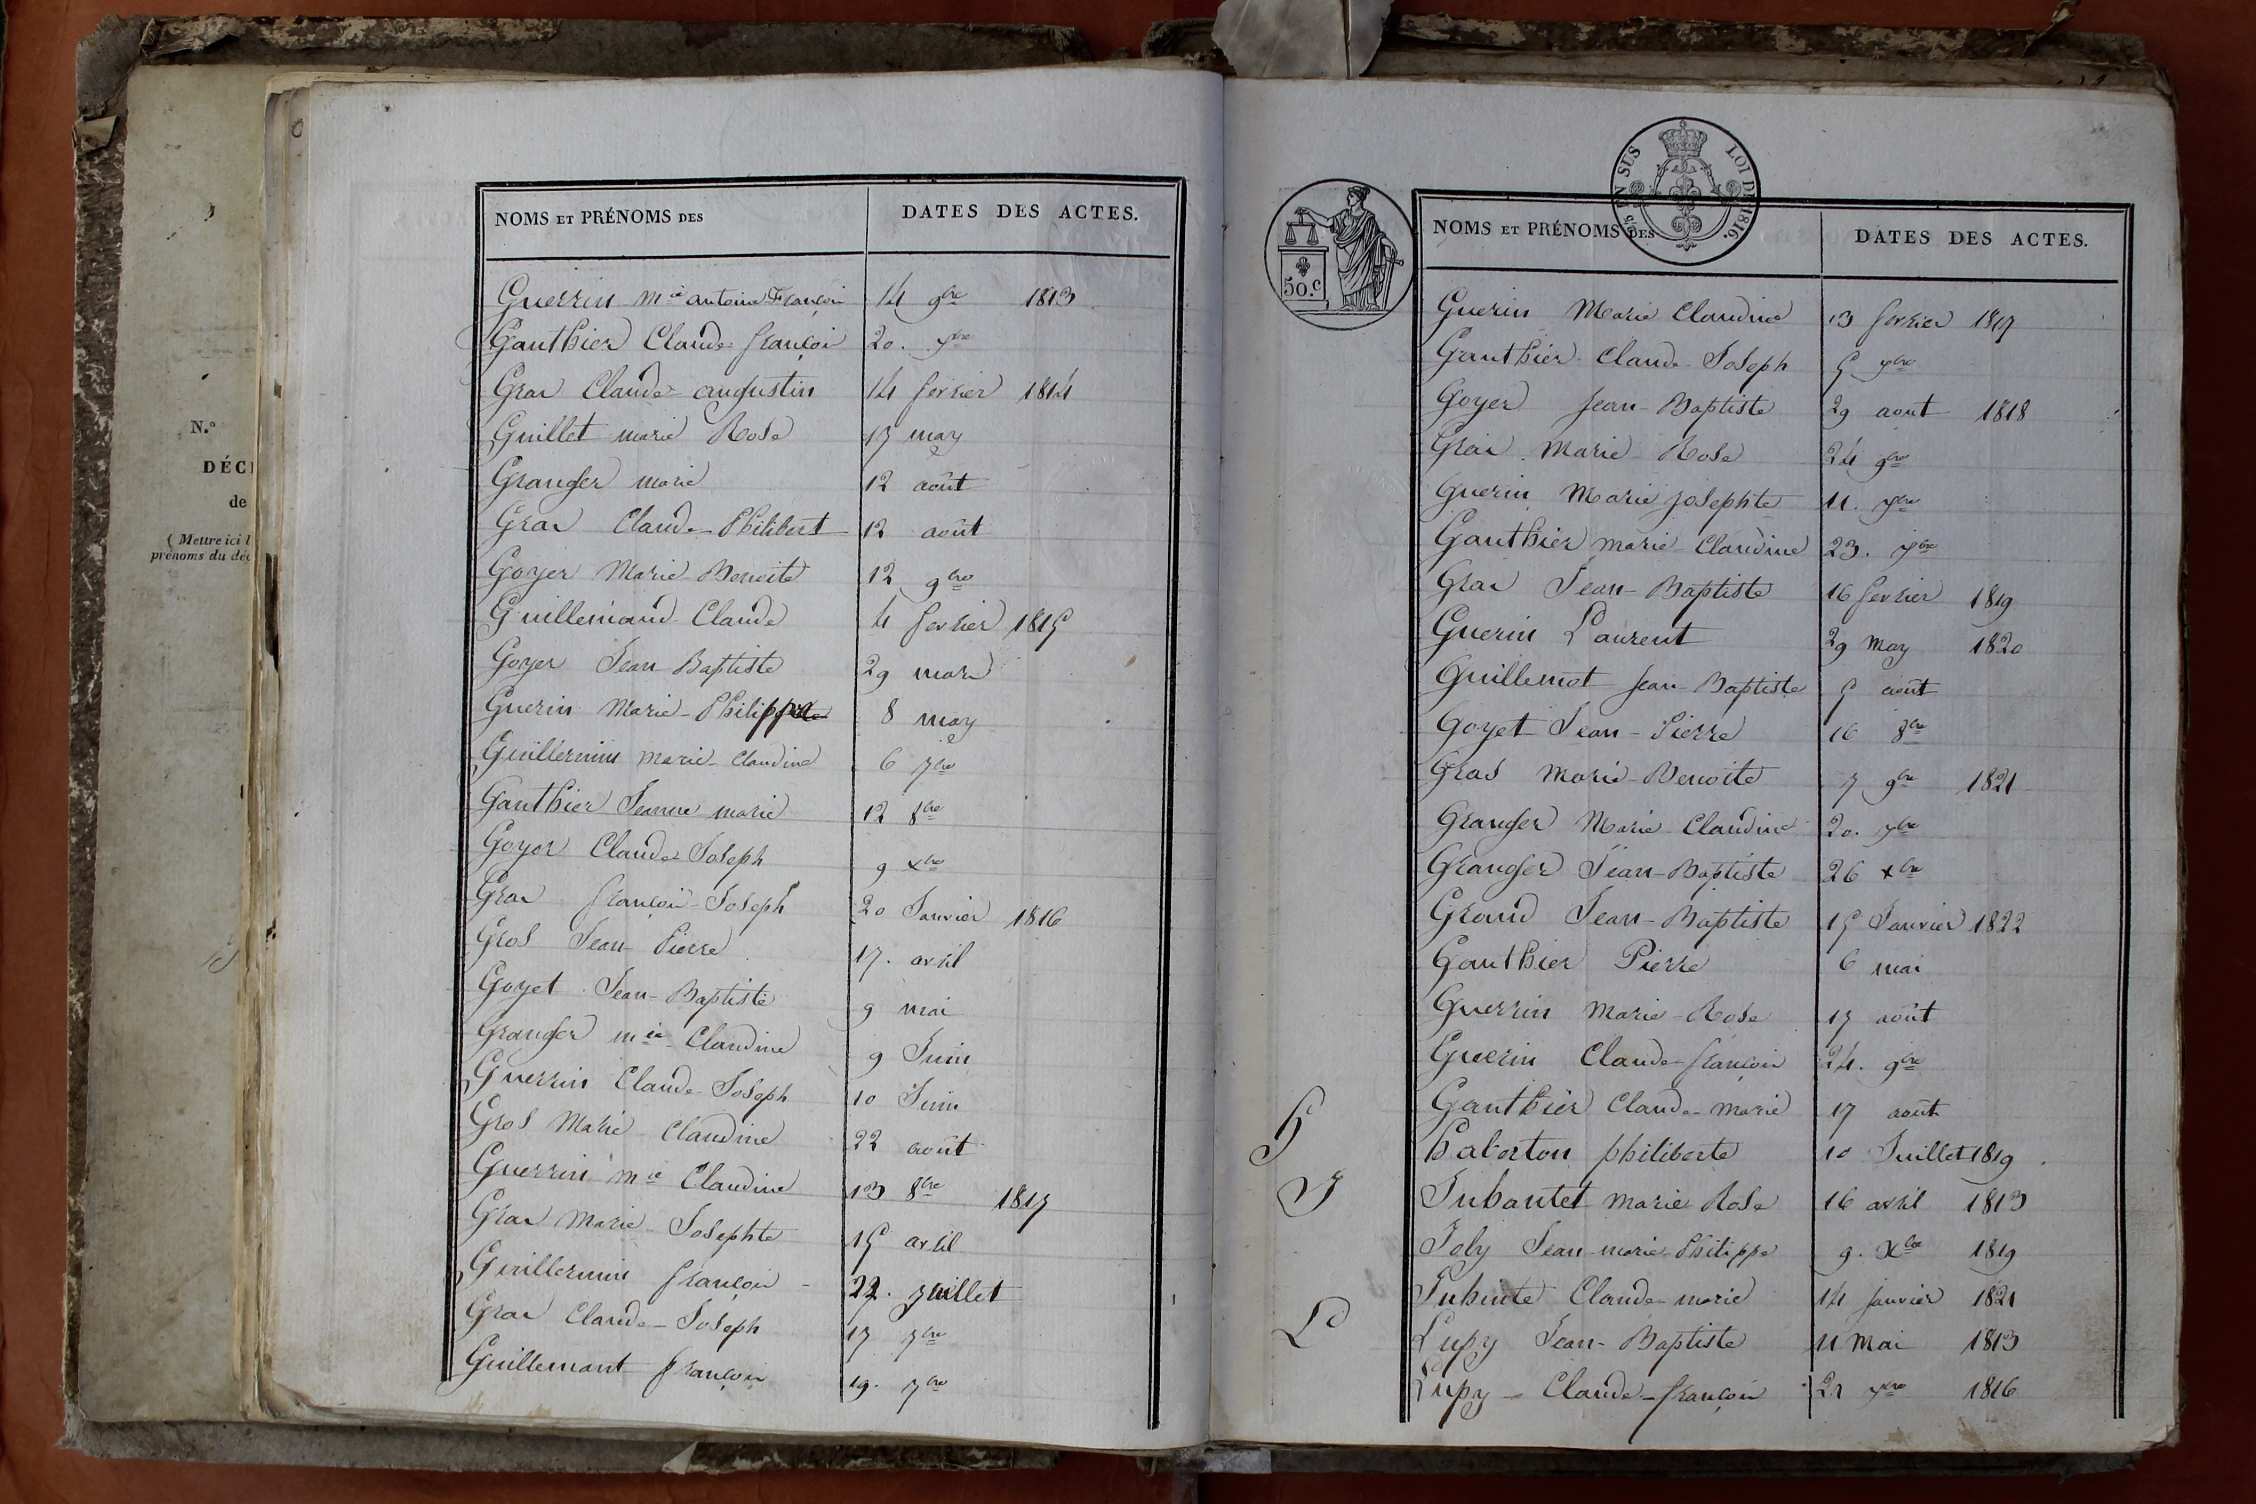 N.o
DÉC
de
( Mettre ici l
prénoms du déc
NOMS ET PRÉNOMS DES DATES DES ACTES.
Guerrin mie antoine François 14 9bre 1813
Gauthier Claude françois 20. xbre
Gras Claude augustin 14 fevrier 1814
Guillet marie Rose 17 may
Granger marie 12 août
Gras Claude-Philibert 12 août
Goyer Marie Benoite 12 9bre
Guillemaud Claude 4 fevrier 1815
Goyer Jean Baptiste 29 mars
Guerin Marie-Philippe 8 may
Guillermin marie-Claudine 6 7bre
Gauthier Jeanne marie 12 8bre
Goyer Claude Joseph 9 xbre
Gras françois-Joseph 20 Janvier 1816
Gros Jean Pierre 17. avril
Goyet Jean-Baptiste 9 mai
Granger mie Claudine 9 Juin
Guerrin Claude Joseph 10 Juin
Gros Marie Claudine 22 août
Guerrin mie Claudine 13 8bre 1817
Gras Marie Josephte 15 avril
Guillermin françois 22. juillet
Gras Claude-Joseph 17 7bre
Guillemant françois 19. 7bre
TIMB. EN SUS LOI DE 1816.
50.c
NOMS ET PRÉNOMS DES DATES DES ACTES.
Guerin Marie Claudine 13 fevrier 1817
Gauthier Claude Joseph 5 xbre
Goyer Jean-Baptiste 29 aout 1818
Gras Marie Rose 24 9bre
Guerin Marie josephte 11. xbre
Gauthier marie Claudine 23. xbre
Gras Jean-Baptiste 16 fevrier 1819
Guerin Laurent 29 may 1820
Guillemot Jean-Baptiste 5 août
Goyet Jean-Pierre 16 8bre
Gras Marie-Benoite 7 9bre 1821
Granger Marie Claudine 20. xbre
Granger Jean-Baptiste 26 xbre
Graud Jean-Baptiste 15 Janvier 1822
Gauthier Pierre 6 mai
Guerrin Marie-Rose 17 août
Guerin Claude-françois 24. 9bre
Gauthier Claude-marie 17 août
H haberton philiberte 10 Juillet 1819
J Jubantet marie Rose 16 avril 1813
Joly Jean-marie-Philippe 9. Xbre 1819
Claude-marie 14 janvier 1821
L Lupy Jean-Baptiste 11 Mai 1813
Lupy Claude-françois 21 xbre 1816